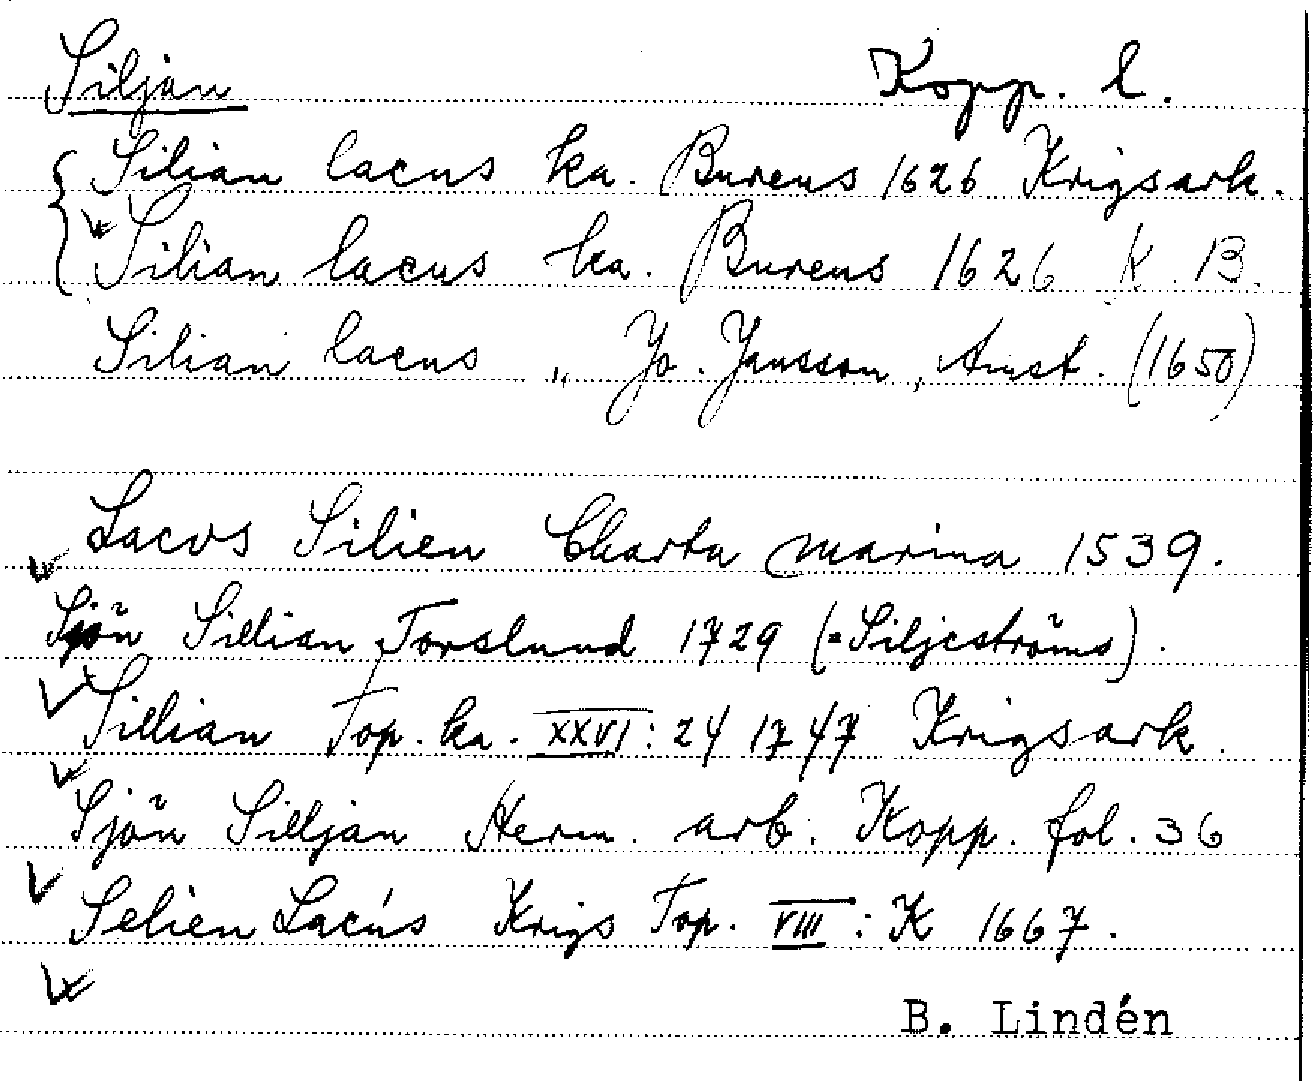 Siljan Kopp. l.
Silian lacus ka. Bureus 1626 Krigsark.
Silian lacus ka. Bureus 1626 K. B.
Silian lacus „ Jo. Jansson, Amst. (1650)
Lacvs Silien Charta marina 1539.
Sjön Sillian Torslund 1729 (=Siljeströms).
Sillian Top. ka. XXVI: 24 1747 Krigsark.
Sjön Silljan Herm. arb. Kopp. fol. 36
Selien Lacus Krigs Top. VIII: K 1667.
B. Lindén